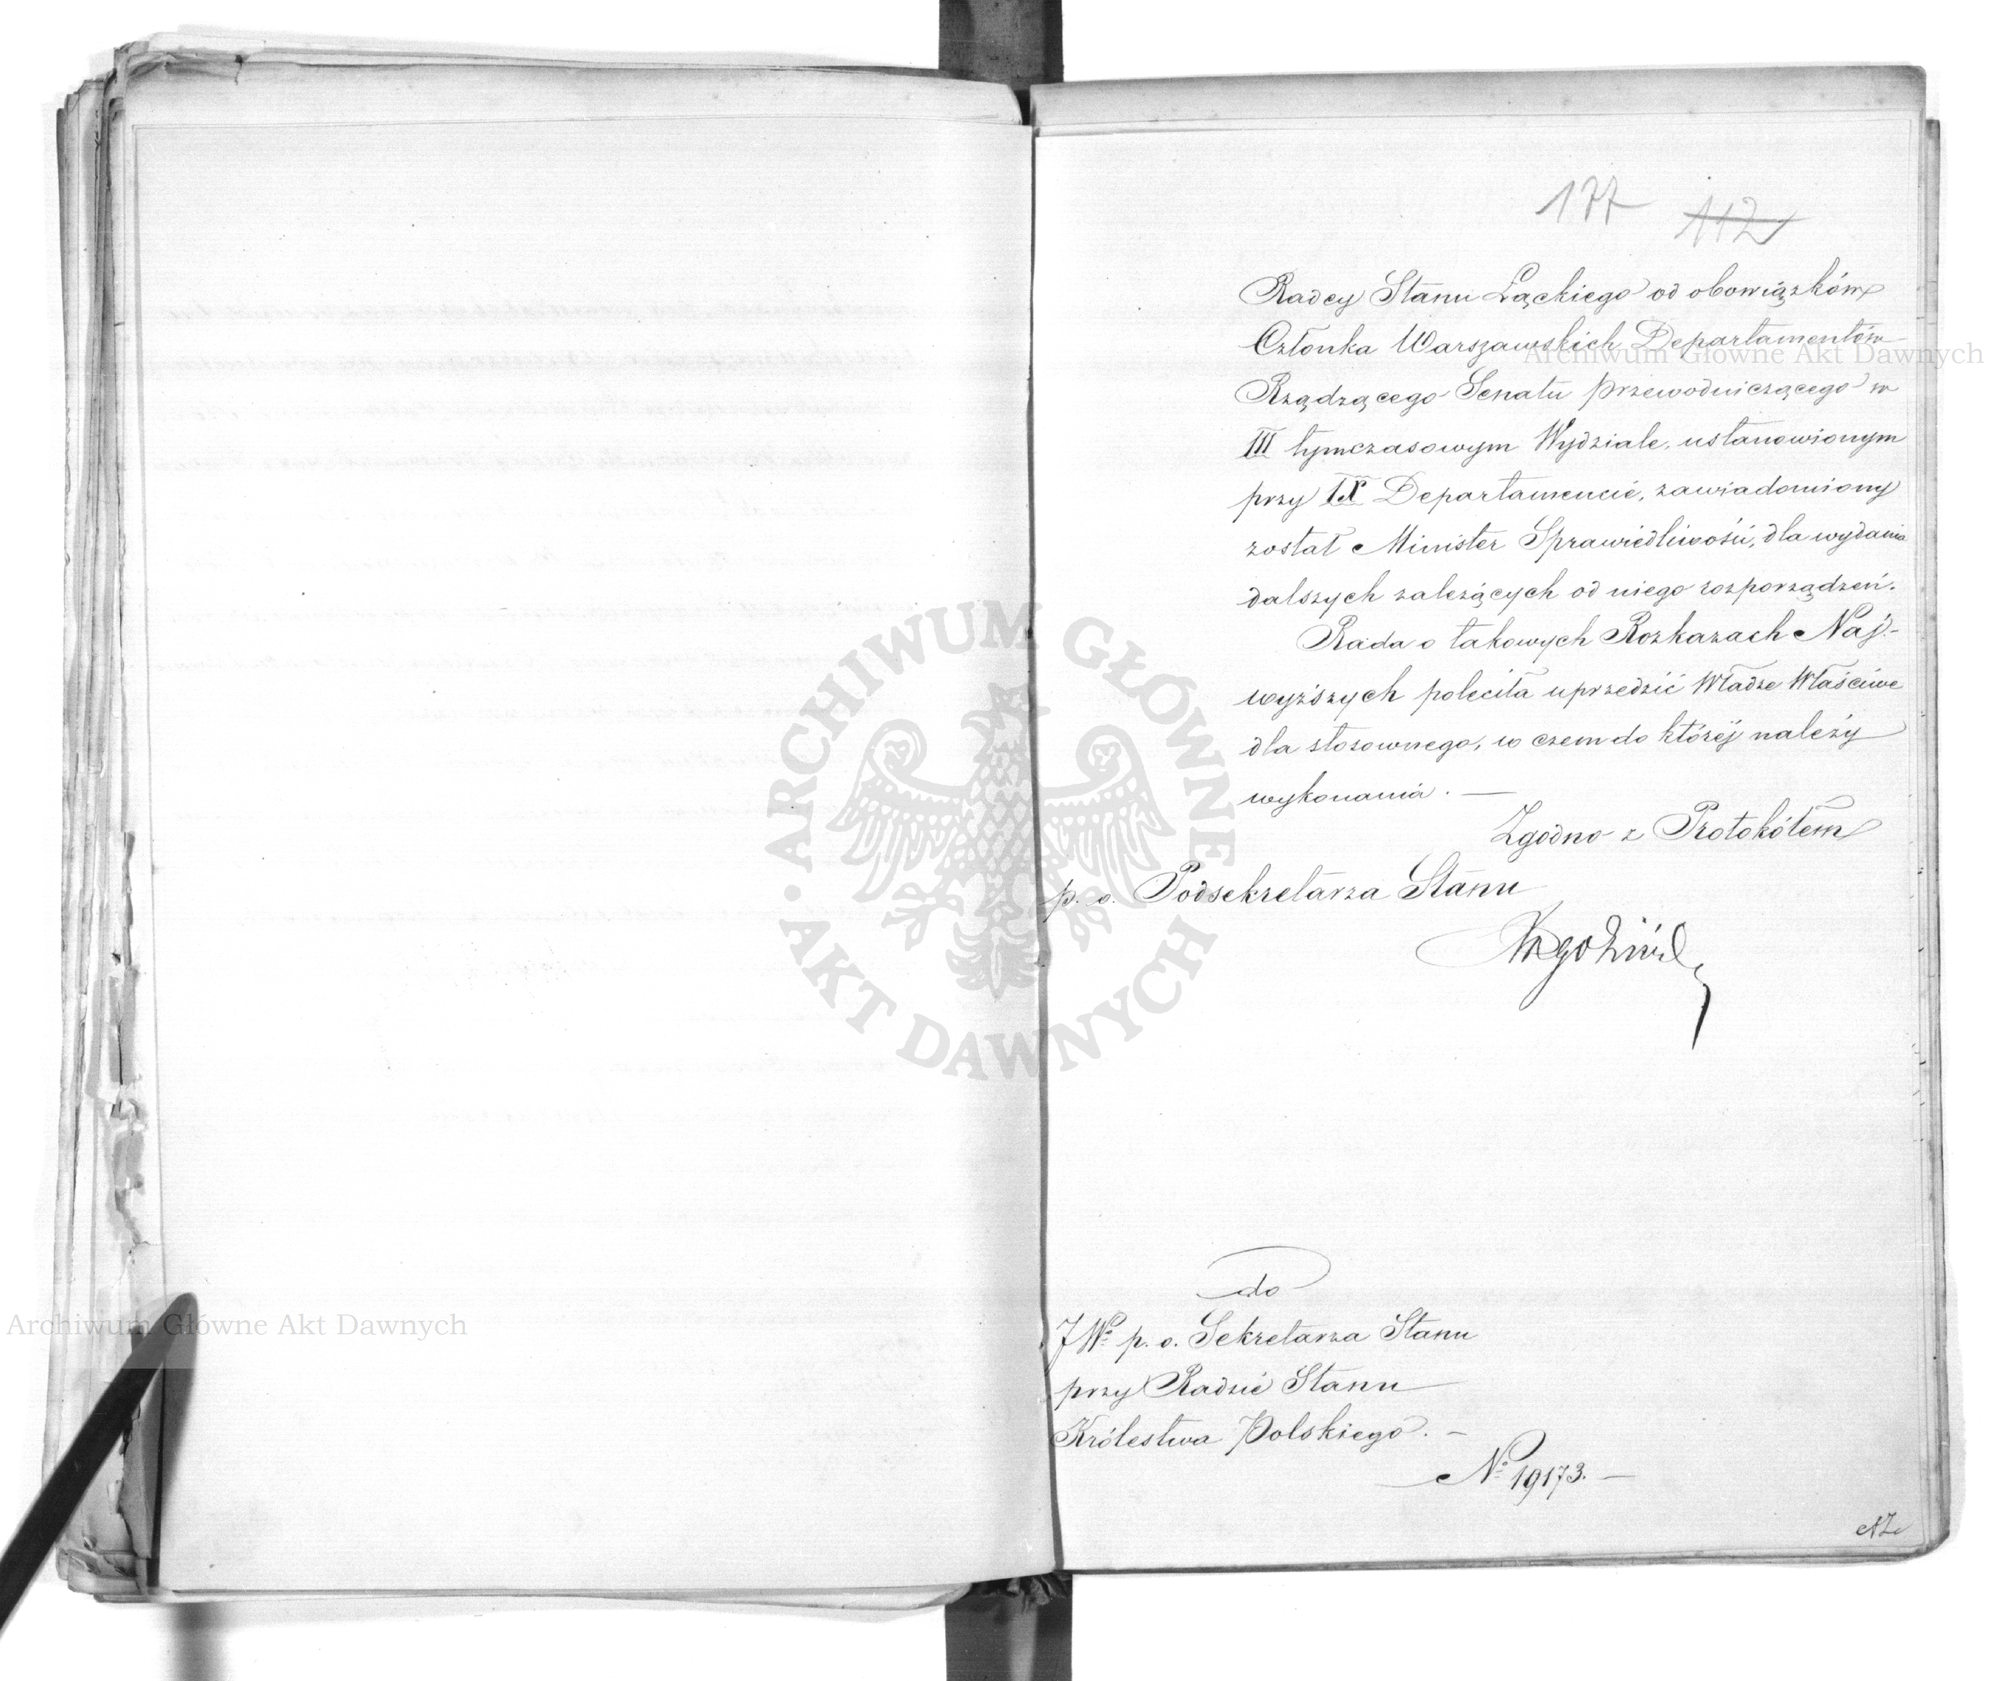 177 112
Radcy Stanu Łąckiego od obowiązków
Członka Warszawskich Departamentów
Rządzącego Senatu przewodniczącego w
III tymczasowym Wydziale, ustanowionym
przy IX Departamencie, zawiadomiony
został Minister Sprawiedliwości, dla wydania
dalszych zależących od niego rozporządzeń.
Rada o takowych Rozkazach Naj-
wyższych poleciła uprzedzić Władze Właściwe
dla stosownego, w czem do któréj należy
wykonania. —
Zgodno z Protokółem
p. o. Podsekretarza Stanu
do
JWo p. o. Sekretarza Stanu
przy Radzie Stanu
Królestwa Polskiego. —
No 19173. —
AZ
Archiwum Główne Akt Dawnych
ARCHIWUM GŁÓWNE · AKT DAWNYCH
Archiwum Główne Akt Dawnych